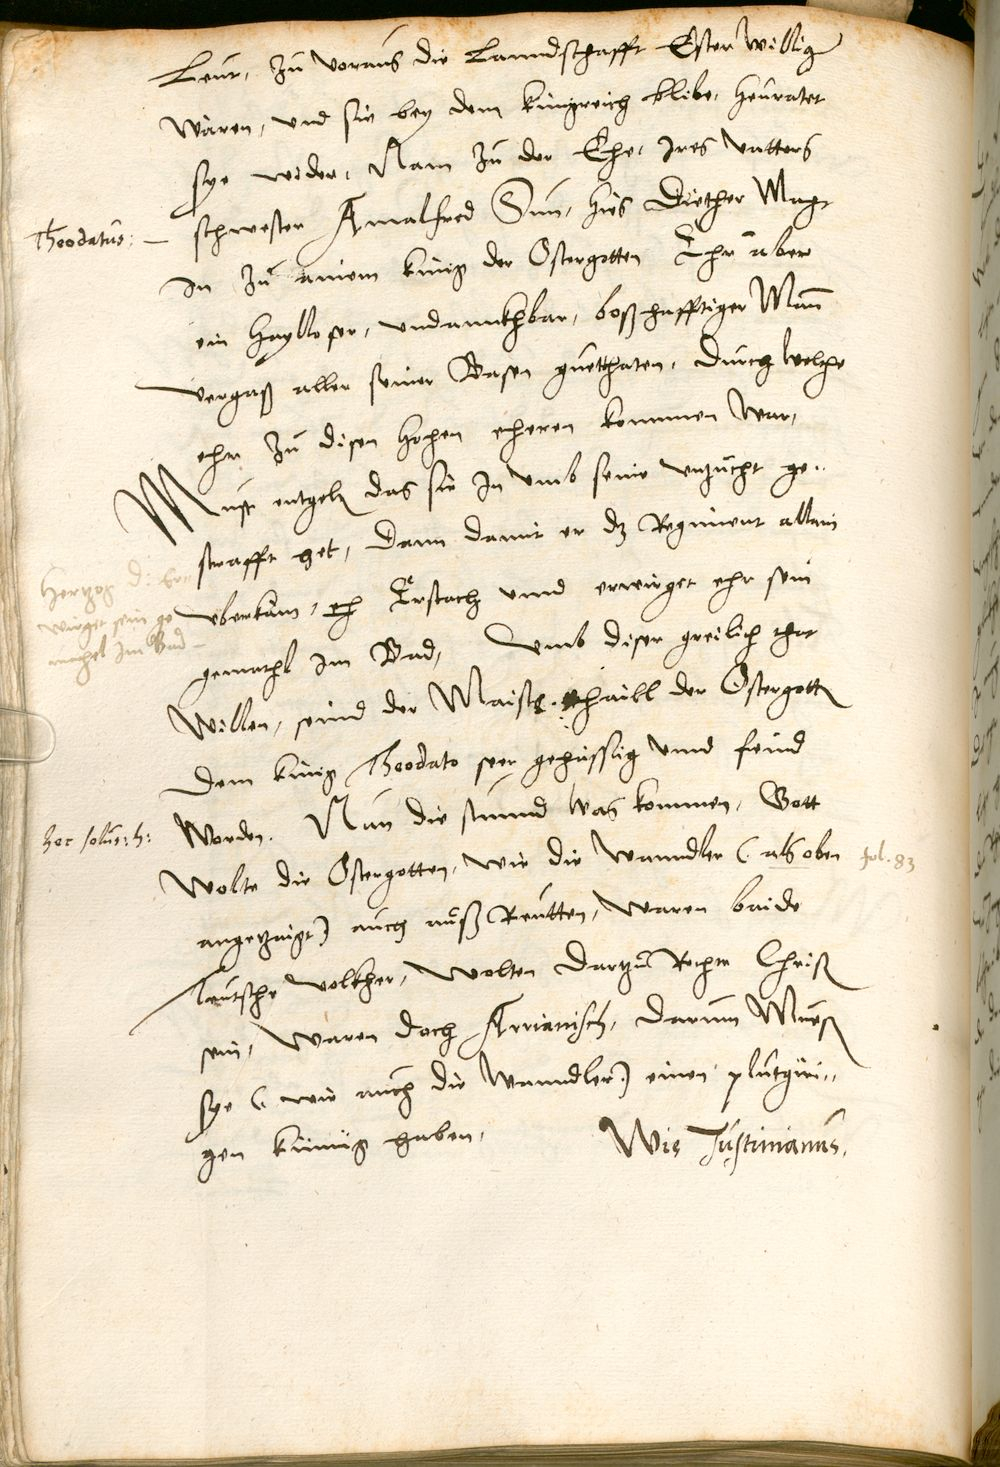 Leut, zu voraus die Lanndschafft Ester willig
wären, und sie bey dem künigreich blibe, heuratet
sye wider, Nam zu der Ehe, jres vatters
schwester Amalfred Sun, hies Diether Magt
Theodatus: —
In zu ainem künig der Ostergotten Ehr aber
ein hayloser, undannkhbar, boßhafftiger Man̄
vergaß aller seiner Basen guetthaten, durch welche
ehr zu disen hohen eheren kommen war,
Must entgelt das sie In umb seine unzucht ge=
strafft het, Dann damit er dz Regiment allain
überkäm, Erstach unnd erwürget ehr sein
Hertzog d: Er
würget sein ge
mahel Im Bad
gemachl im Bad, Umb diser greilich that
willen, seind der Maist thaill der Ostergott
dem künig Theodato seer gehässig unnd feind
worden. Nun die stunnd was kommen, Gott
wolte die Ostergotten, wie die wanndler (als oben
fol. 83
angezaigt) auch auß Reutten, waren baide
Teutsche volkher, wolten dartzu Rechte Chriß
sein, waren doch Arrianisch, darum Mueß
sye (wie auch die wanndler) einen plutgüri=
gen künnig haben,
Wie Justinianus,